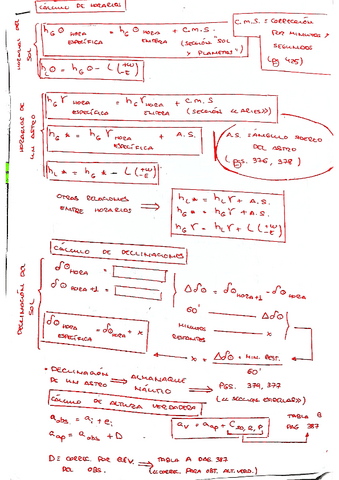 CÁLCULO DE HORARIOS
HORARIOS DEL SOL
hG⊙ HORA ESPECÍFICA = hG⊙ HORA ENTERA + C.M.S.
(SECCIÓN "SOL Y PLANETAS")
C.M.S. = CORRECCIÓN
POR MINUTOS Y
SEGUNDOS
hL⊙ = hG⊙ - L (+W -E)
HORARIOS DE UN ASTRO
hGϒ HORA ESPECÍFICA = hGϒ HORA ENTERA + C.M.S
(SECCIÓN "ARIES")
hG* = hGϒ HORA ESPECÍFICA + A.S.
A.S. = ÁNGULO SIDÉREO
DEL ASTRO
(PGS. 376, 378)
hL* = hG* - L (+W -E)
OTRAS RELACIONES
ENTRE HORARIOS
⟹
hL* = hLϒ + A.S.
hG* = hGϒ + A.S.
hGϒ = hLϒ + L (+W -E)
CÁLCULO DE DECLINACIONES
DECLINACIÓN DEL SOL
δ⊙ HORA =
δ⊙ HORA+1 =
Δδ⊙ = δ⊙ HORA+1 - δ⊙ HORA
60' — Δδ⊙
MINUTOS RESTANTES — x
δ⊙ HORA ESPECÍFICA = δ⊙ HORA + x
x = Δδ⊙ · MIN. REST. / 60'
• DECLINACIÓN DE UN ASTRO ⟹ ALMANAQUE NÁUTICO ⟹ PGS. 376, 377
CÁLCULO DE ALTURA VERDADERA
aobs = ai + ei
aap = aobs + D
av = aap + C
TABLA B
PAG 387
D = CORREC. POR ELEV. DEL OBS. ⟹ TABLA A PAG 387
("CORREC. PARA OBT. ALT. VERD.")